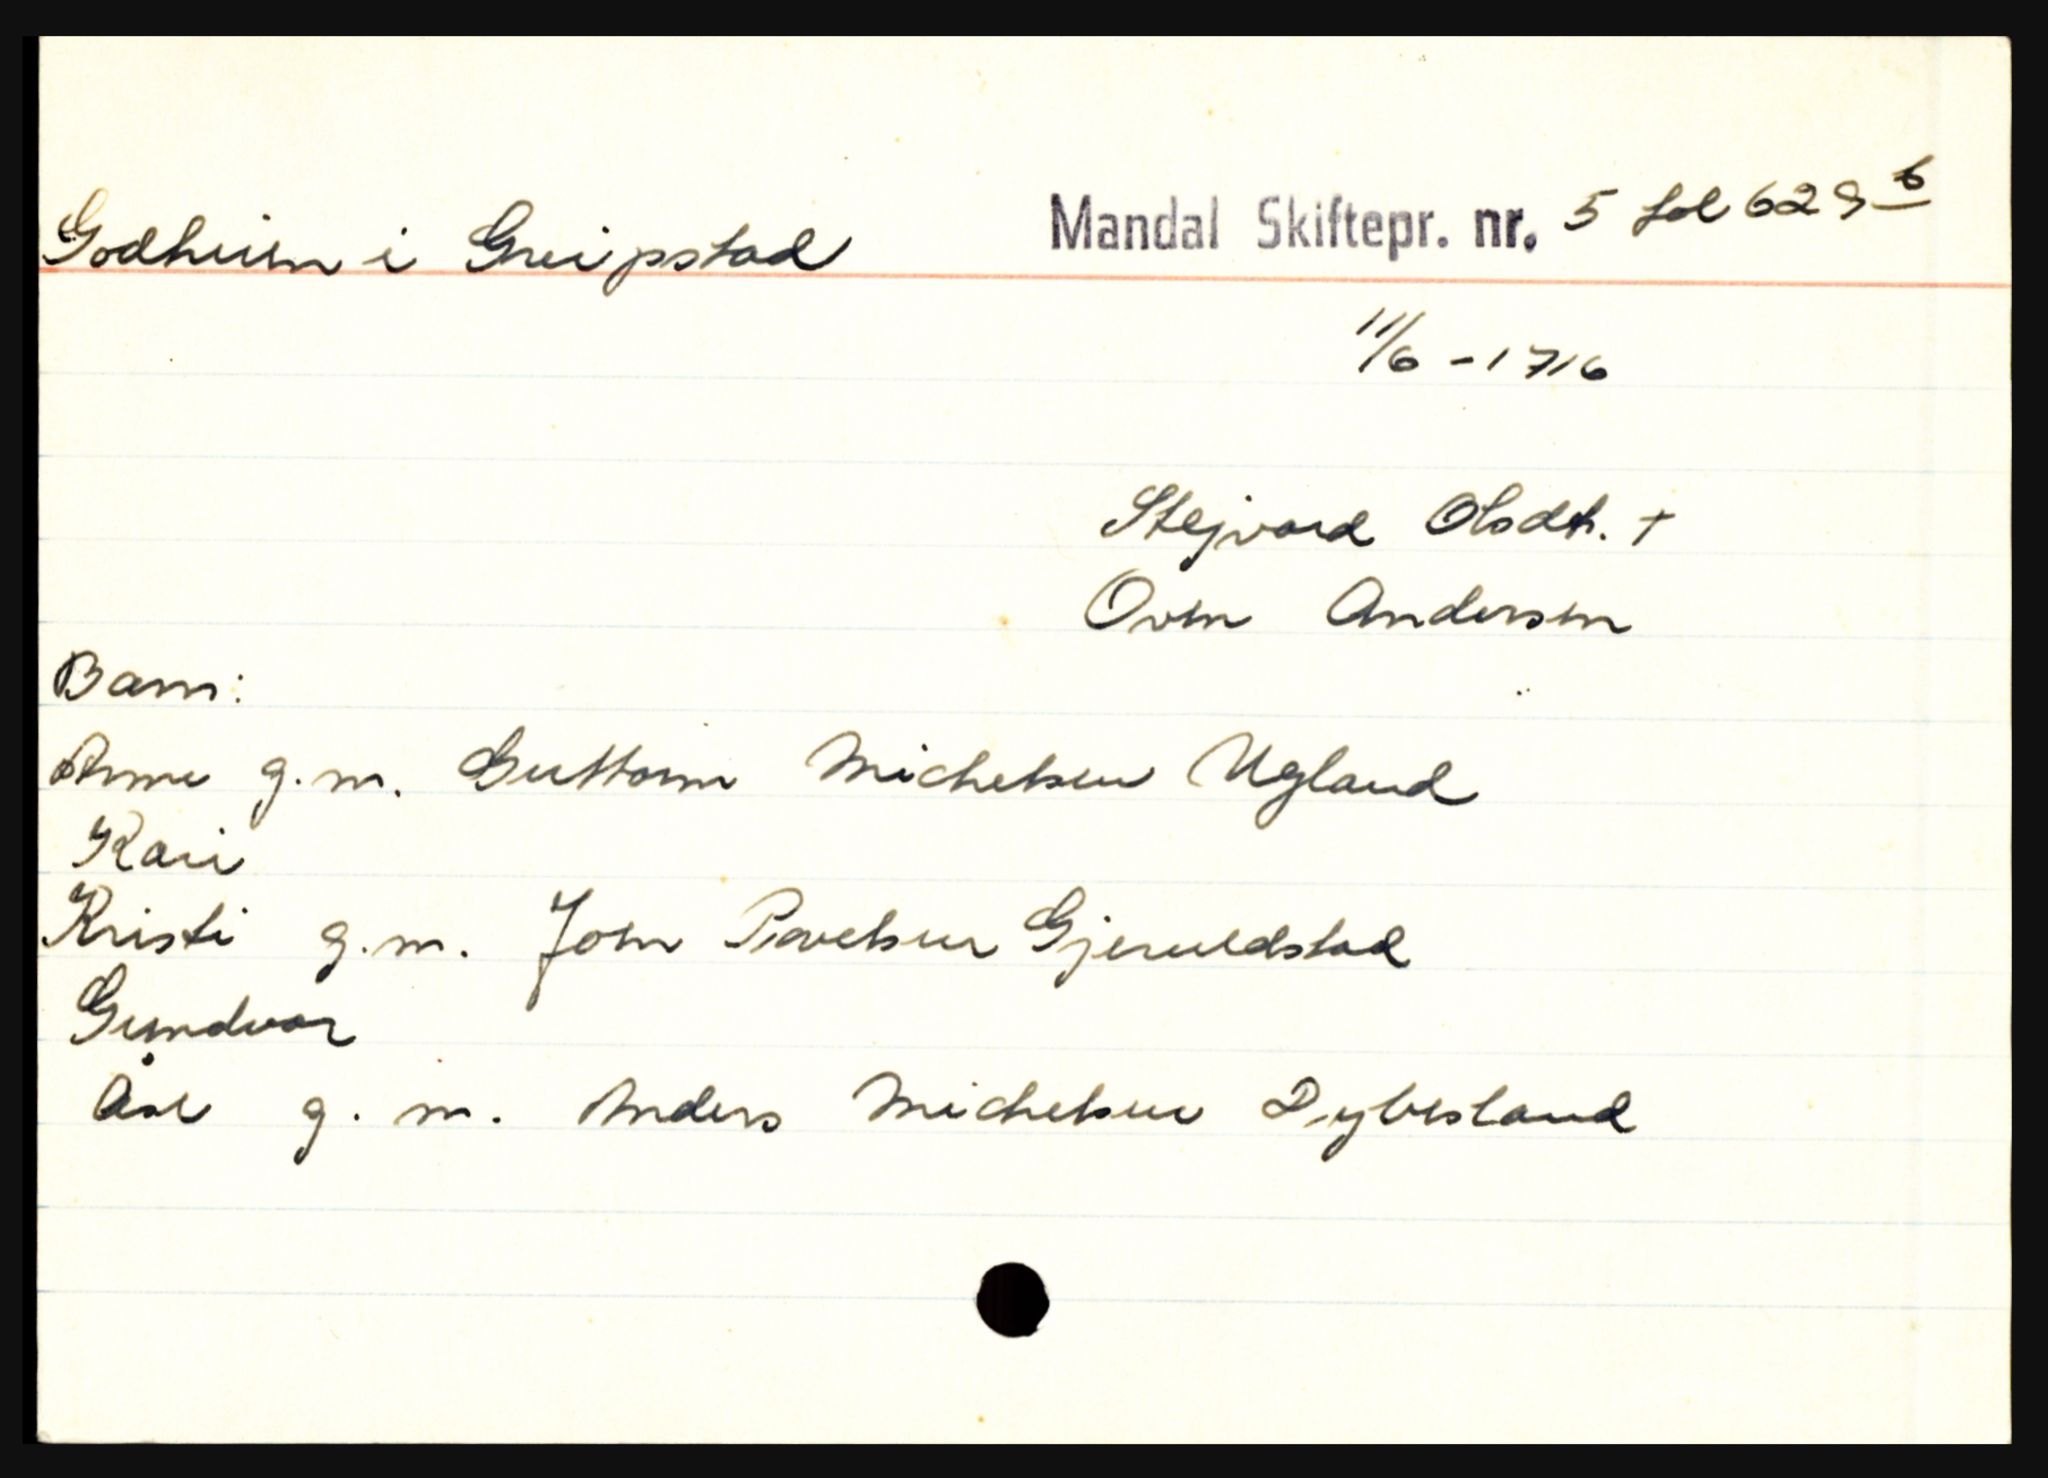 Godheim i Greipstad Mandal Skiftepr. nr. 5 fol 629 b
11/6 - 1716
Stejvard Olsdt. +
Oven Andersen
Barn:
Anne g.m. Guttorm Michelsen Ugland
Kari
Kristi g.m. Joen Pavelsen Gjeruldstad
Gundvor
Åse g.m. Anders Michelsen Dybesland